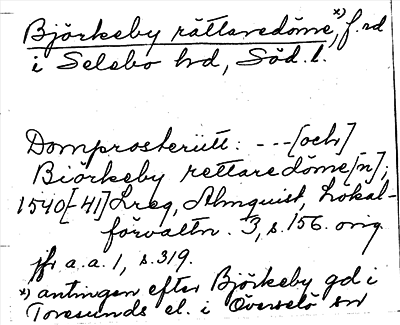 Björkeby rättaredöme,*) f.rd
i Selebo hd, Söd.l.
Domprosteriitt: ---[och]
Biörkeby rettaredöme[n];
1540[-41] Lreg, Almquist, Lokal-
förvaltn. 3, s. 156. orig
jfr a.a. 1, s. 319.
*) antingen efter Björkeby gd i
Toresunds el. i Överselö sn